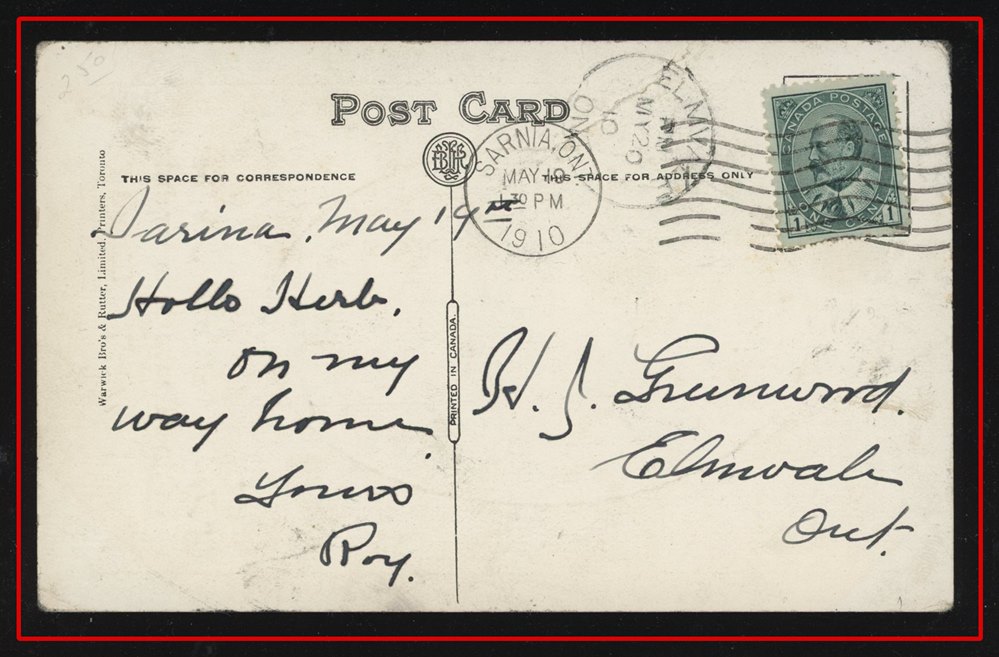 250
POST CARD
ELMVALE
AM
MY 20
10
ONT
SARNIA, ONT.
MAY 19
1 30 PM
1910
CANADA POSTAGE
1 ONE CENT 1
BRW
THIS SPACE FOR CORRESPONDENCE
THIS SPACE FOR ADDRESS ONLY
Warwick Bro's & Rutter, Limited, Printers, Toronto
PRINTED IN CANADA.
Sarina, May 19th
Hello Herb,
On my
way home
Yours
Roy.
H. J. Greenwood.
Elmvale
Ont.